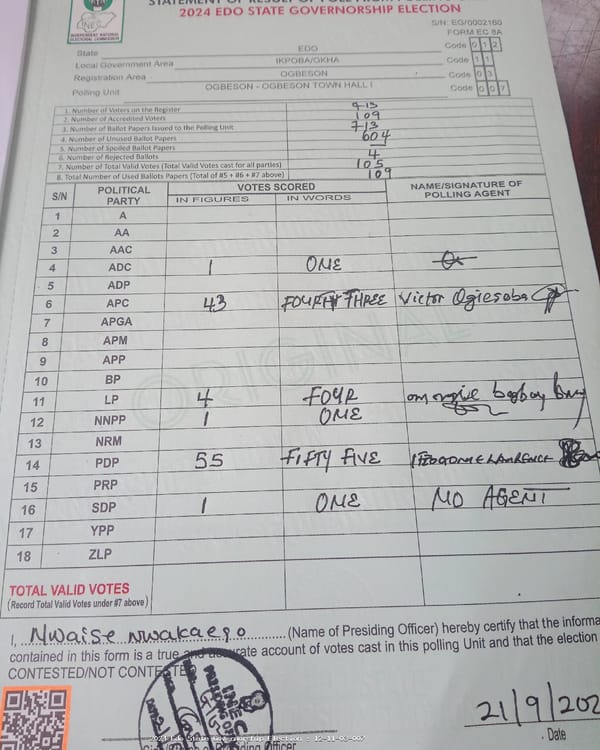 STATEMENT OF RESULT OF POLL FROM POLLING UNIT
2024 EDO STATE GOVERNORSHIP ELECTION
INDEPENDENT NATIONAL ELECTORAL COMMISSION
S/N: EG/0002160
FORM EC 8A
State EDO Code 0 1 2
Local Government Area IKPOBA/OKHA Code 1 1
Registration Area OGBESON Code 0 3
Polling Unit OGBESON - OGBESON TOWN HALL I Code 0 0 7
1. Number of Voters on the Register 913
2. Number of Accredited Voters 109
3. Number of Ballot Papers Issued to the Polling Unit 713
4. Number of Unused Ballot Papers 604
5. Number of Spoiled Ballot Papers —
6. Number of Rejected Ballots 4
7. Number of Total Valid Votes (Total Valid Votes cast for all parties) 105
8. Total Number of Used Ballots Papers (Total of #5 + #6 + #7 above) 109
S/N POLITICAL PARTY VOTES SCORED NAME/SIGNATURE OF POLLING AGENT
IN FIGURES IN WORDS
1 A
2 AA
3 AAC
4 ADC 1 ONE
5 ADP
6 APC 43 FOURTY THREE Victor Ogiesoba
7 APGA
8 APM
9 APP
10 BP
11 LP 4 FOUR
12 NNPP 1 ONE
13 NRM
14 PDP 55 FIFTY FIVE LAWRENCE
15 PRP
16 SDP 1 ONE NO AGENT
17 YPP
18 ZLP
ORIGINAL
TOTAL VALID VOTES
(Record Total Valid Votes under #7 above)
I, Nwaise Nwakaego (Name of Presiding Officer) hereby certify that the informa
contained in this form is a true and accurate account of votes cast in this polling Unit and that the election
CONTESTED/NOT CONTESTED
21/9/202
Date
2024 Edo State Governorship Election - 12-11-03-007
Presiding Officer